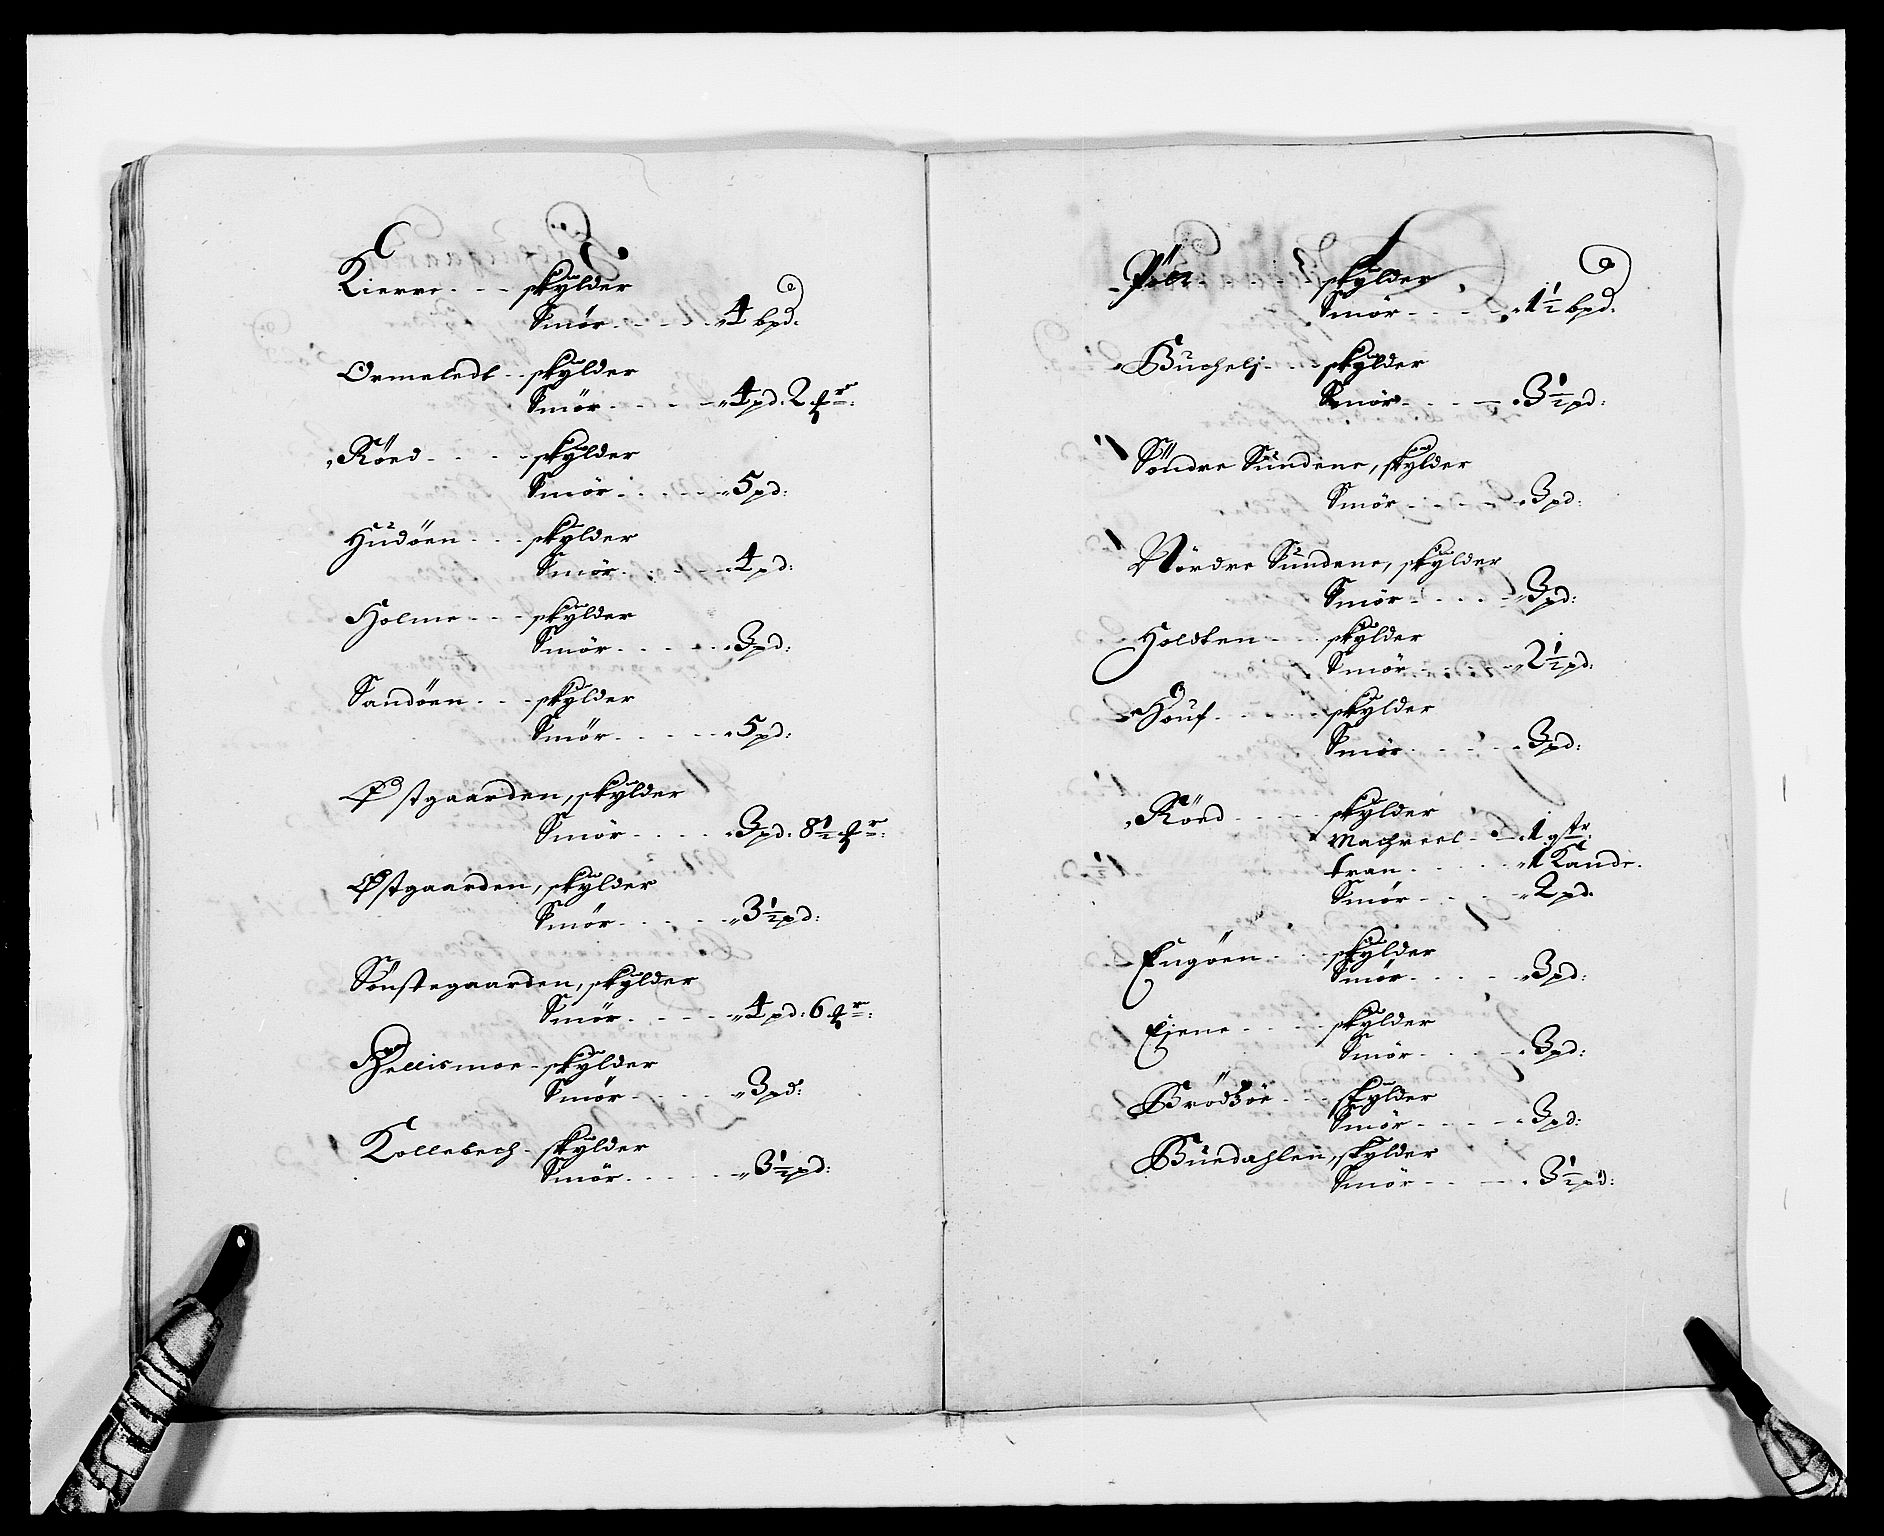 Kierre - - - skylder
Smör - - - - 4 bpd.
Ormeledt - - skylder
Smör - - - - 4 pd. 2
Röed - - - - skylder
Smör - - - - 5 pd:
Hudöen - - - skylder
Smör - - - - 4 pd:
Holme - - - skylder
Smör - - - - 3 pd:
Sandöen - - - skylder
Smör - - - - 5 pd:
Østgaarden, skylder
Smör - - - - 3 pd: 8½
Østgaarden, skylder
Smör - - - - 3½ pd:
Sönstegaarden, skylder
Smör - - - - 4 pd: 6
skylder
Smör - - - - 3 pd:
Kollebech - skylder
Smör - - - - 3½ pd:
skylder
Smör - - - - 1½ bpd.
skylder
Smör - - - - 3½ pd:
Söndre Sundene, skylder
Smör - - - - 3 pd:
Nördre Sundene, skylder
Smör - - - - 3 pd:
Holdten - - - skylder
Smör - - - - 2½ pd:
Houf - - - - skylder
Smör - - - - 3 pd:
Röed - - - - skylder
Machreel - - 1
tran - - - - 1 Kande.
Smör - - - - 2 pd.
Engöen - - - skylder
Smör - - - - 3 pd:
Eiene - - - - skylder
Smör - - - - 3 pd:
skylder
Smör - - - - 3 pd:
Büedahlen, skylder
Smör - - - - 3½ pd: